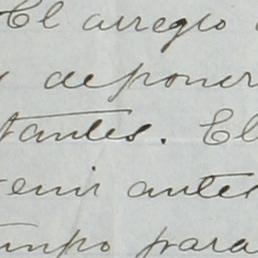 El arreglo
y deponer
tantes. El
enir antes
empo para